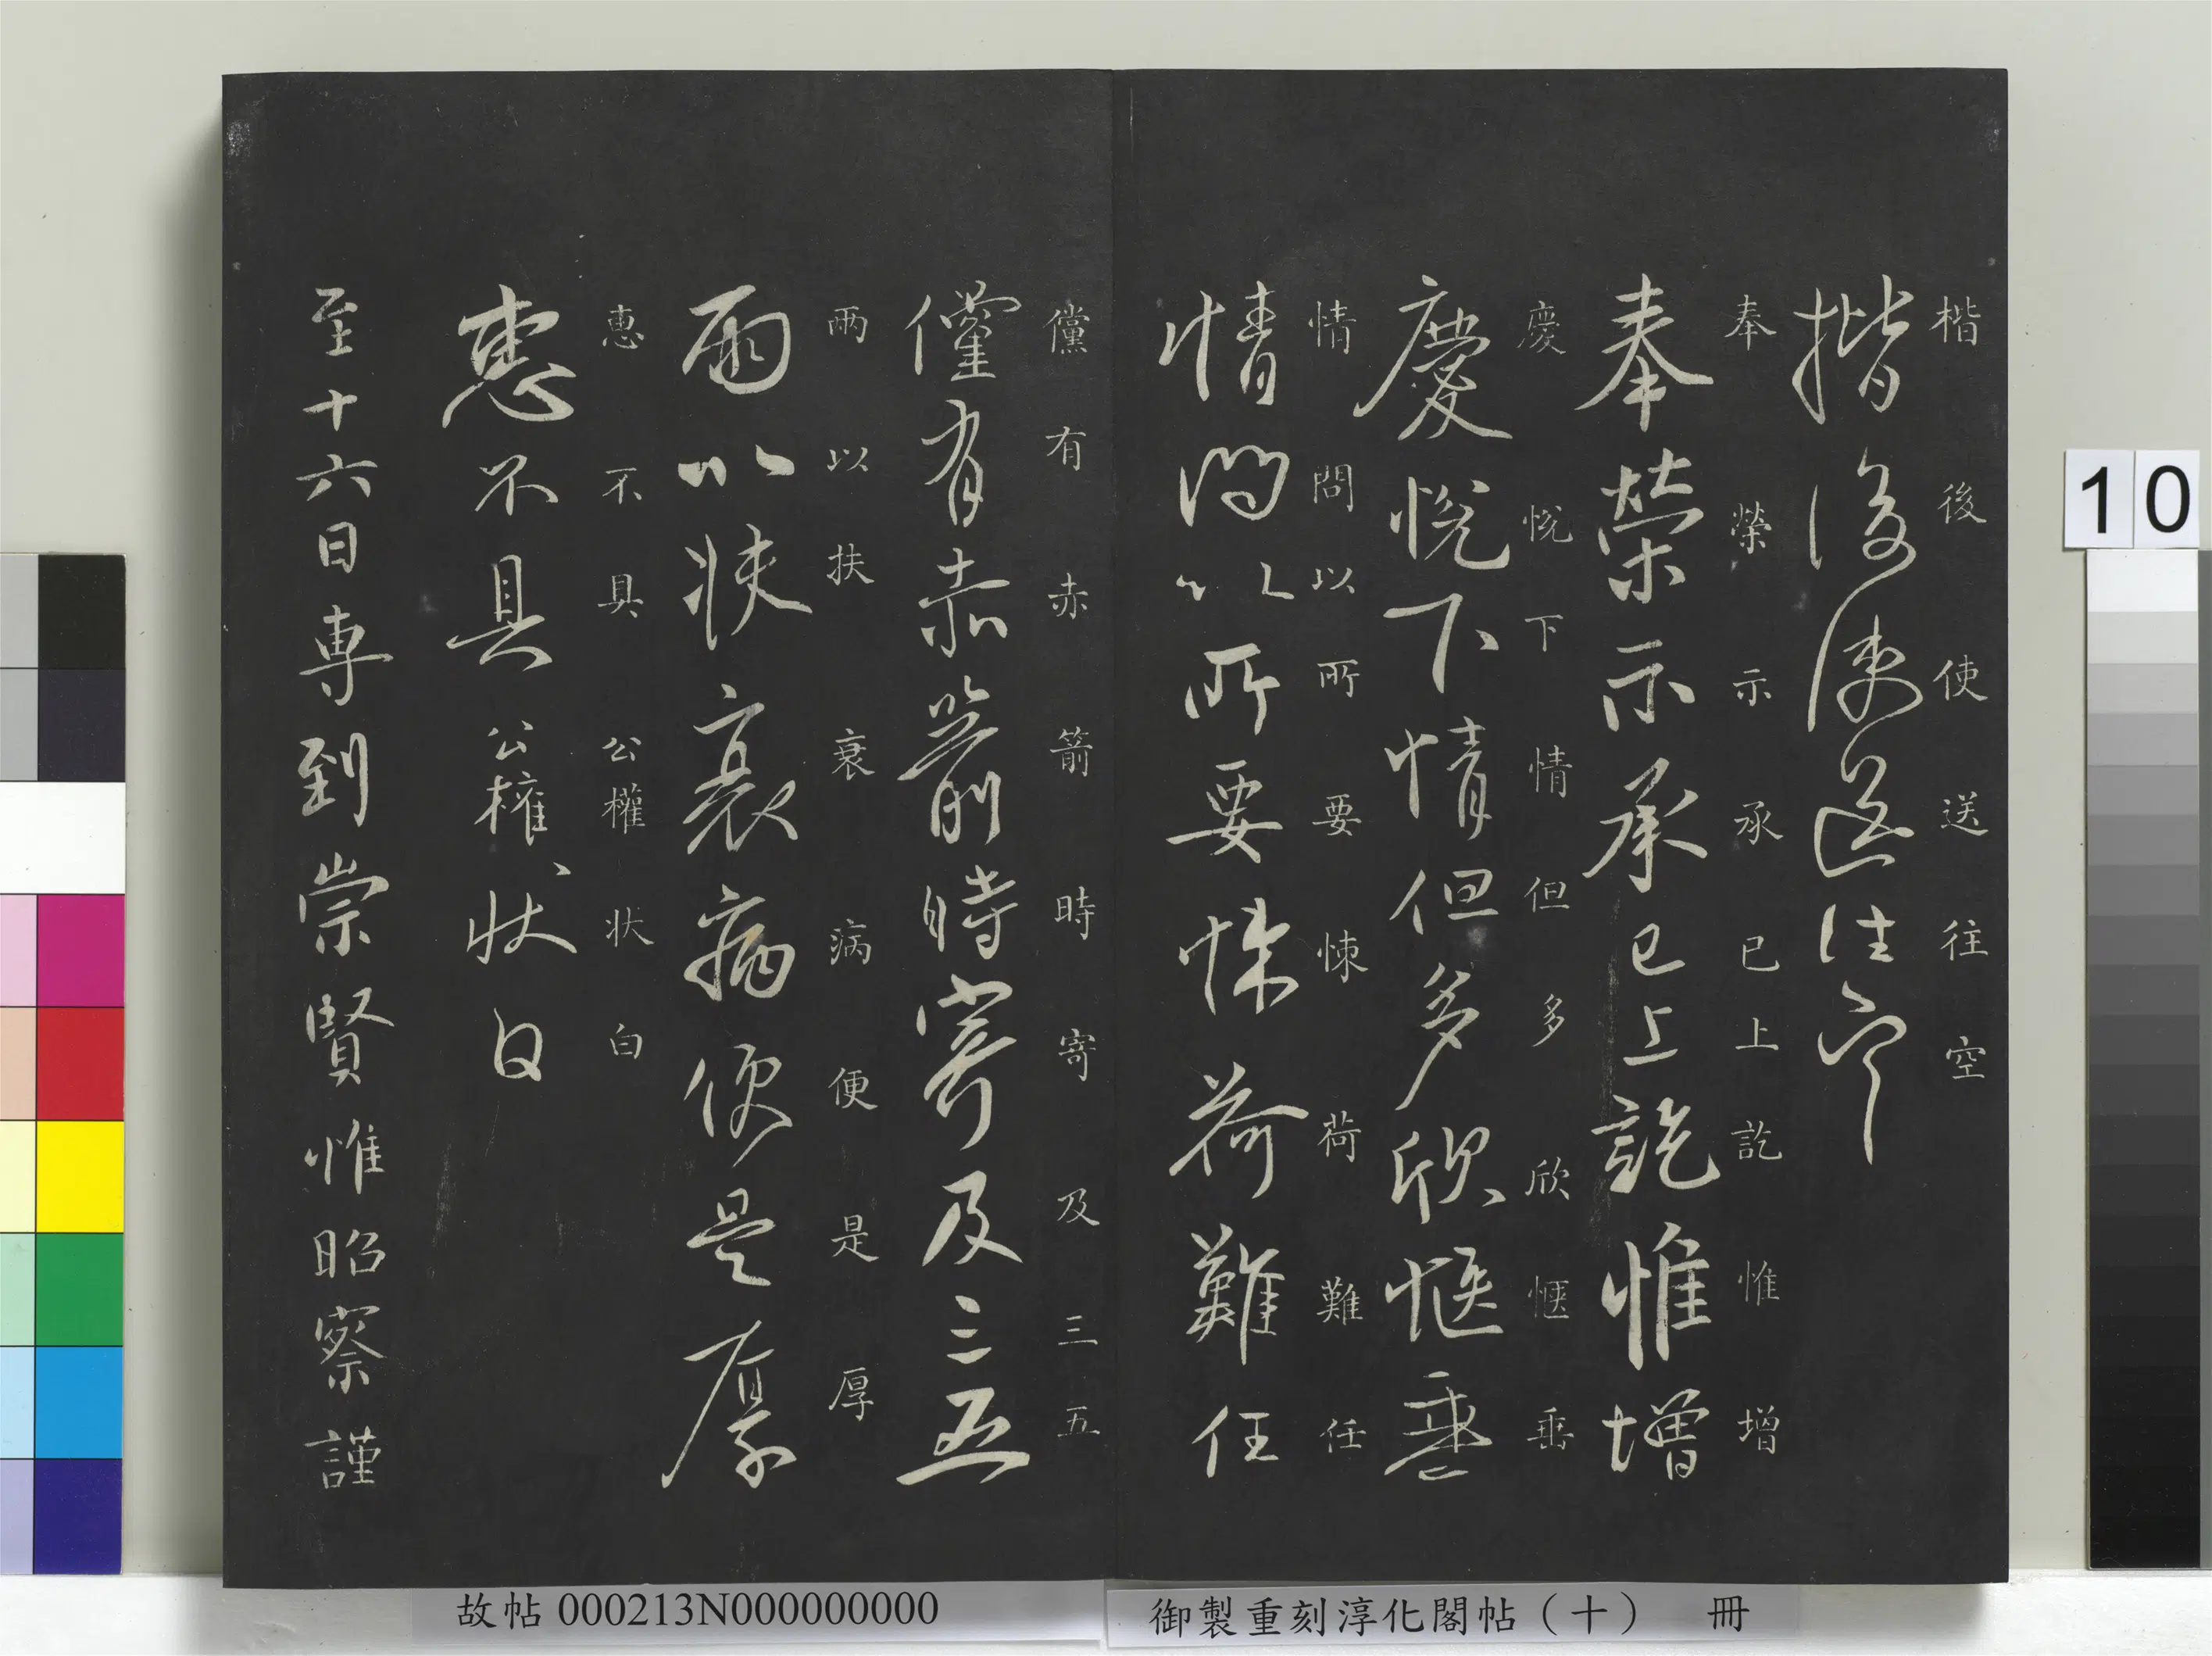 楷後使送往空
楷後使送往空
奉榮示承已上訖惟增
奉榮示承已上訖惟增
慶悅下情但多欣愜垂
慶悅下情但多欣愜垂
情問以所要悚荷難任
情問以所要悚荷難任
儻有赤箭時寄及三五
儻有赤箭時寄及三五
兩以扶衰病便是厚
兩以扶衰病便是厚
惠不具公權状白
惠不具公權状白
至十六日專到崇賢惟昭察謹
10
故帖 000213N000000000
御製重刻淳化閣帖（十） 冊